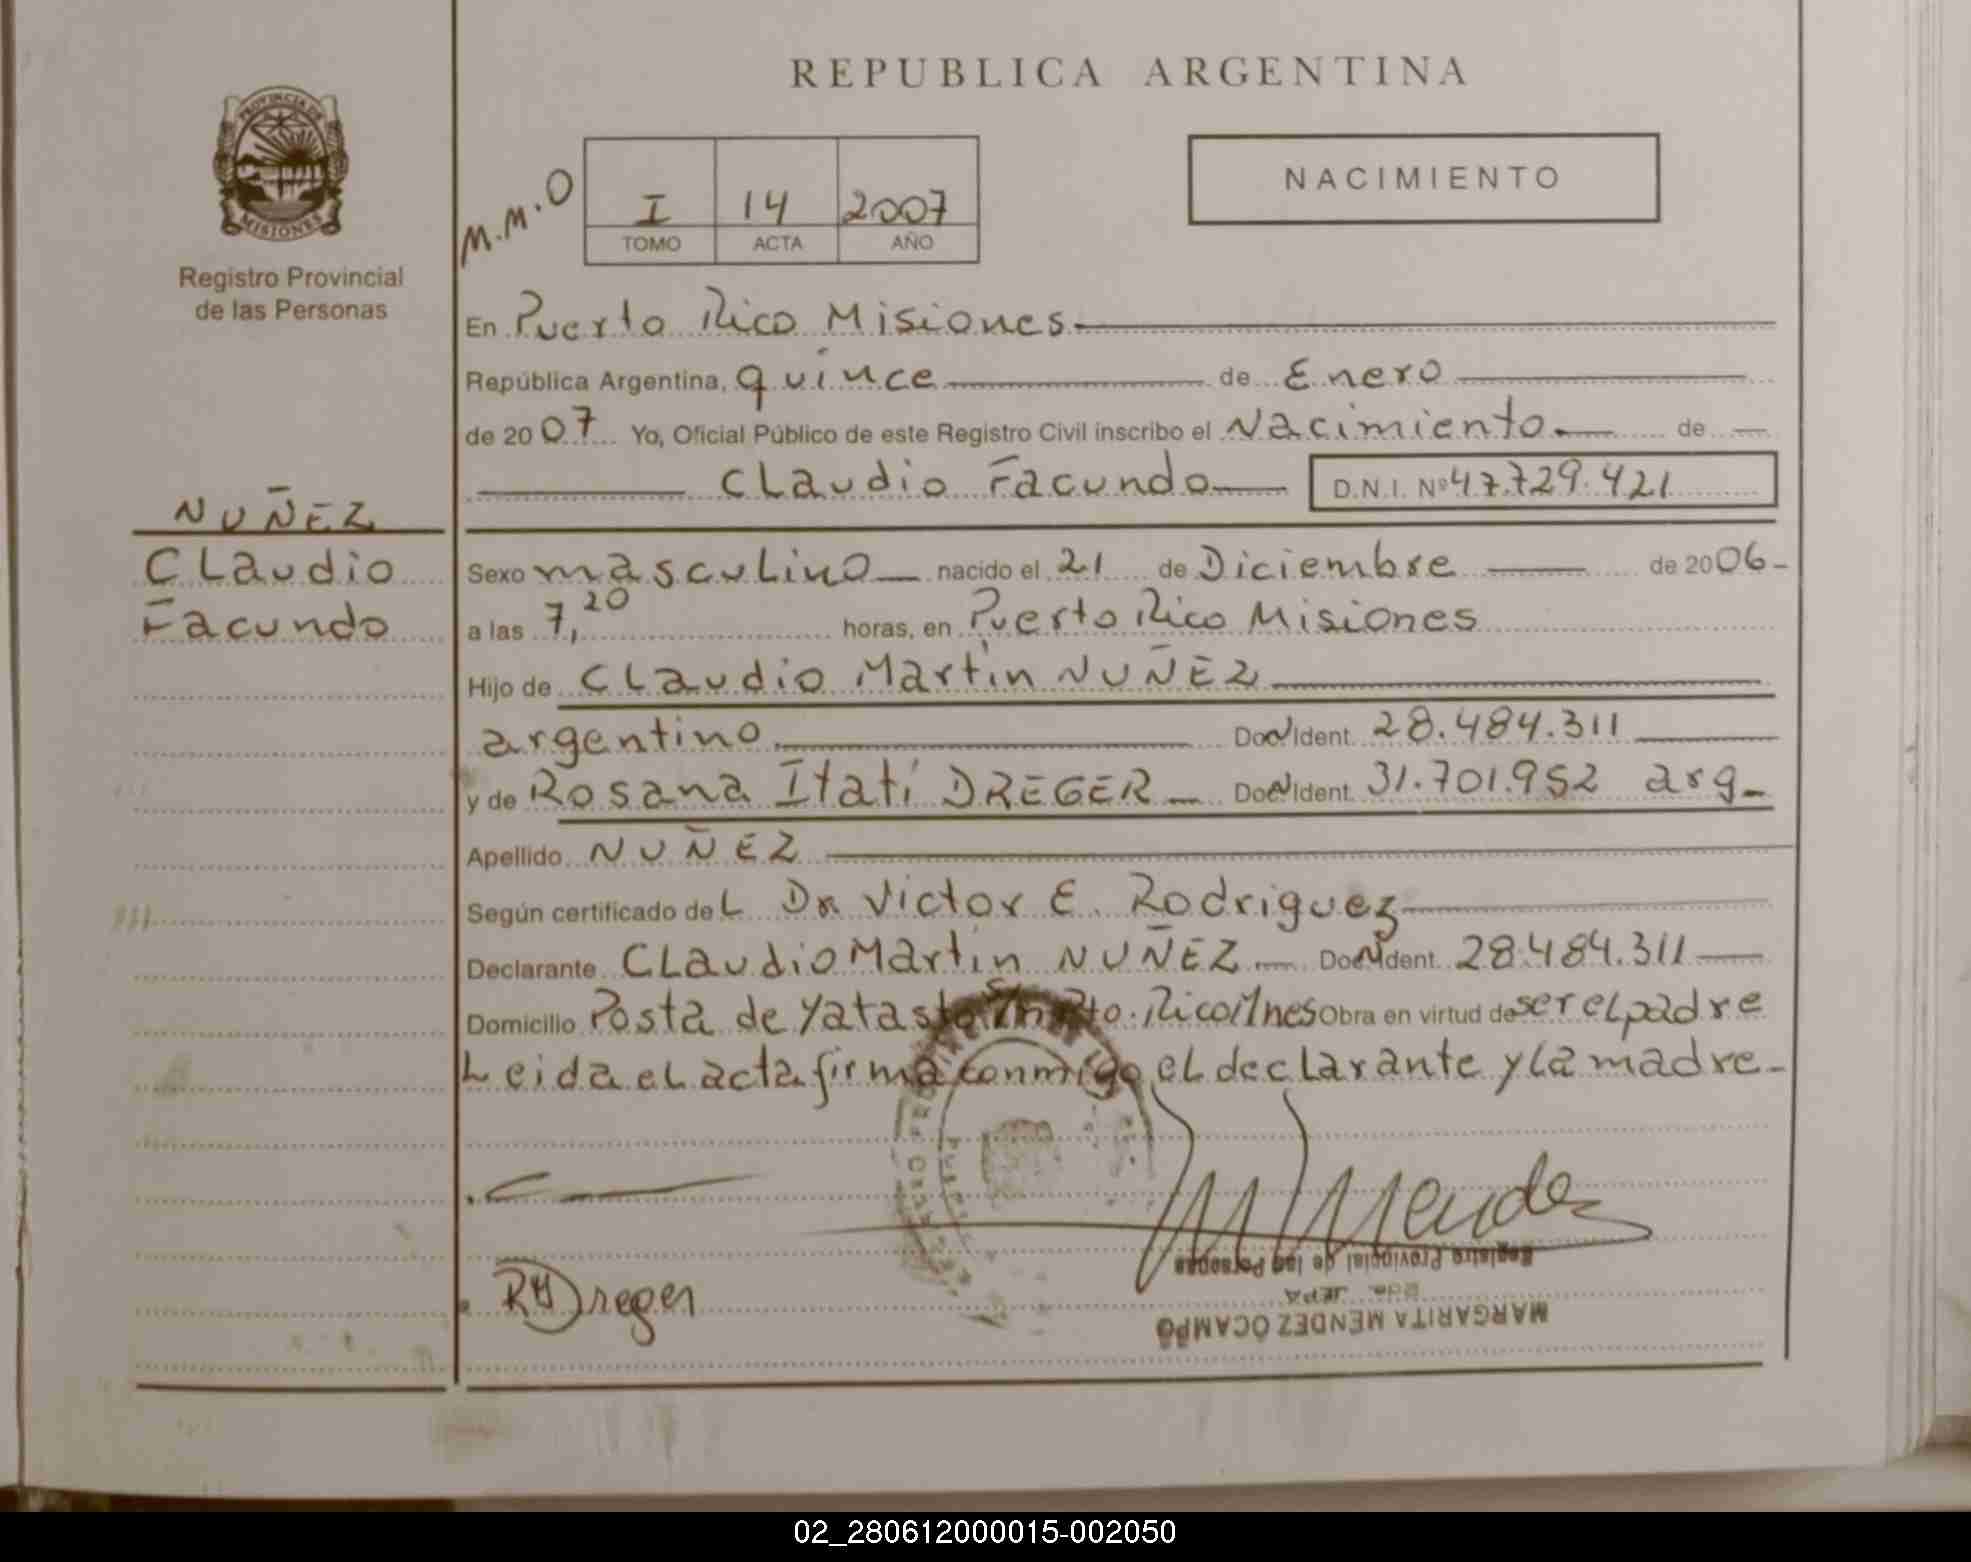 REPUBLICA ARGENTINA
PROVINCIA DE
MISIONES
Registro Provincial
de las Personas
M.M.O
I 14 2007
TOMO ACTA AÑO
NACIMIENTO
En Puerto Rico Misiones
República Argentina, quince de Enero
de 2007 Yo, Oficial Público de este Registro Civil inscribo el Nacimiento de
Claudio Facundo D.N.I. Nº 47.729.421
NUÑEZ
Claudio
Facundo
Sexo masculino nacido el 21 de Diciembre de 2006
a las 7,20 horas, en Puerto Rico Misiones
Hijo de Claudio Martín NUÑEZ
argentino Doc. Ident. 28.484.311
y de Rosana Itatí DREGER Doc. Ident. 31.701.952 arg
Apellido NUÑEZ
Según certificado del Dr Victor E. Rodriguez
Declarante Claudio Martín NUÑEZ Doc. Ident. 28.484.311
Domicilio Posta de Yatasto S/n Pto. Rico Mnes Obra en virtud de ser el padre
Leida el acta firma conmigo el declarante y la madre.
Mendez
Registro Provincial de las Personas
JEFA
MARGARITA MENDEZ OCAMPO
Dreger
02_280612000015-002050